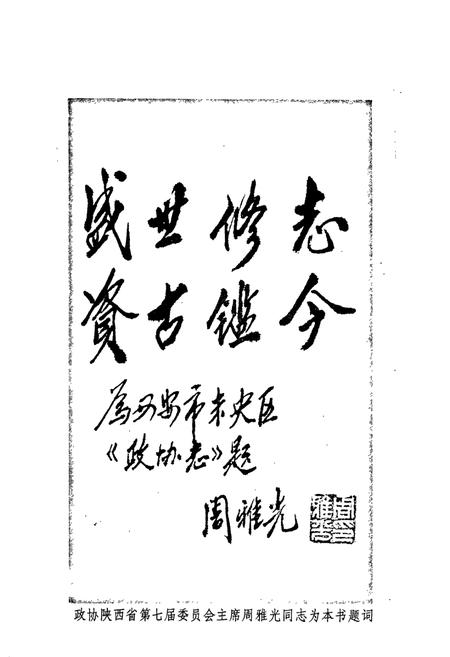 盛世修志
资古鑑今
为西安市未央区
《政协志》题
周雅光
周雅光印
政协陕西省第七届委员会主席周雅光同志为本书题词